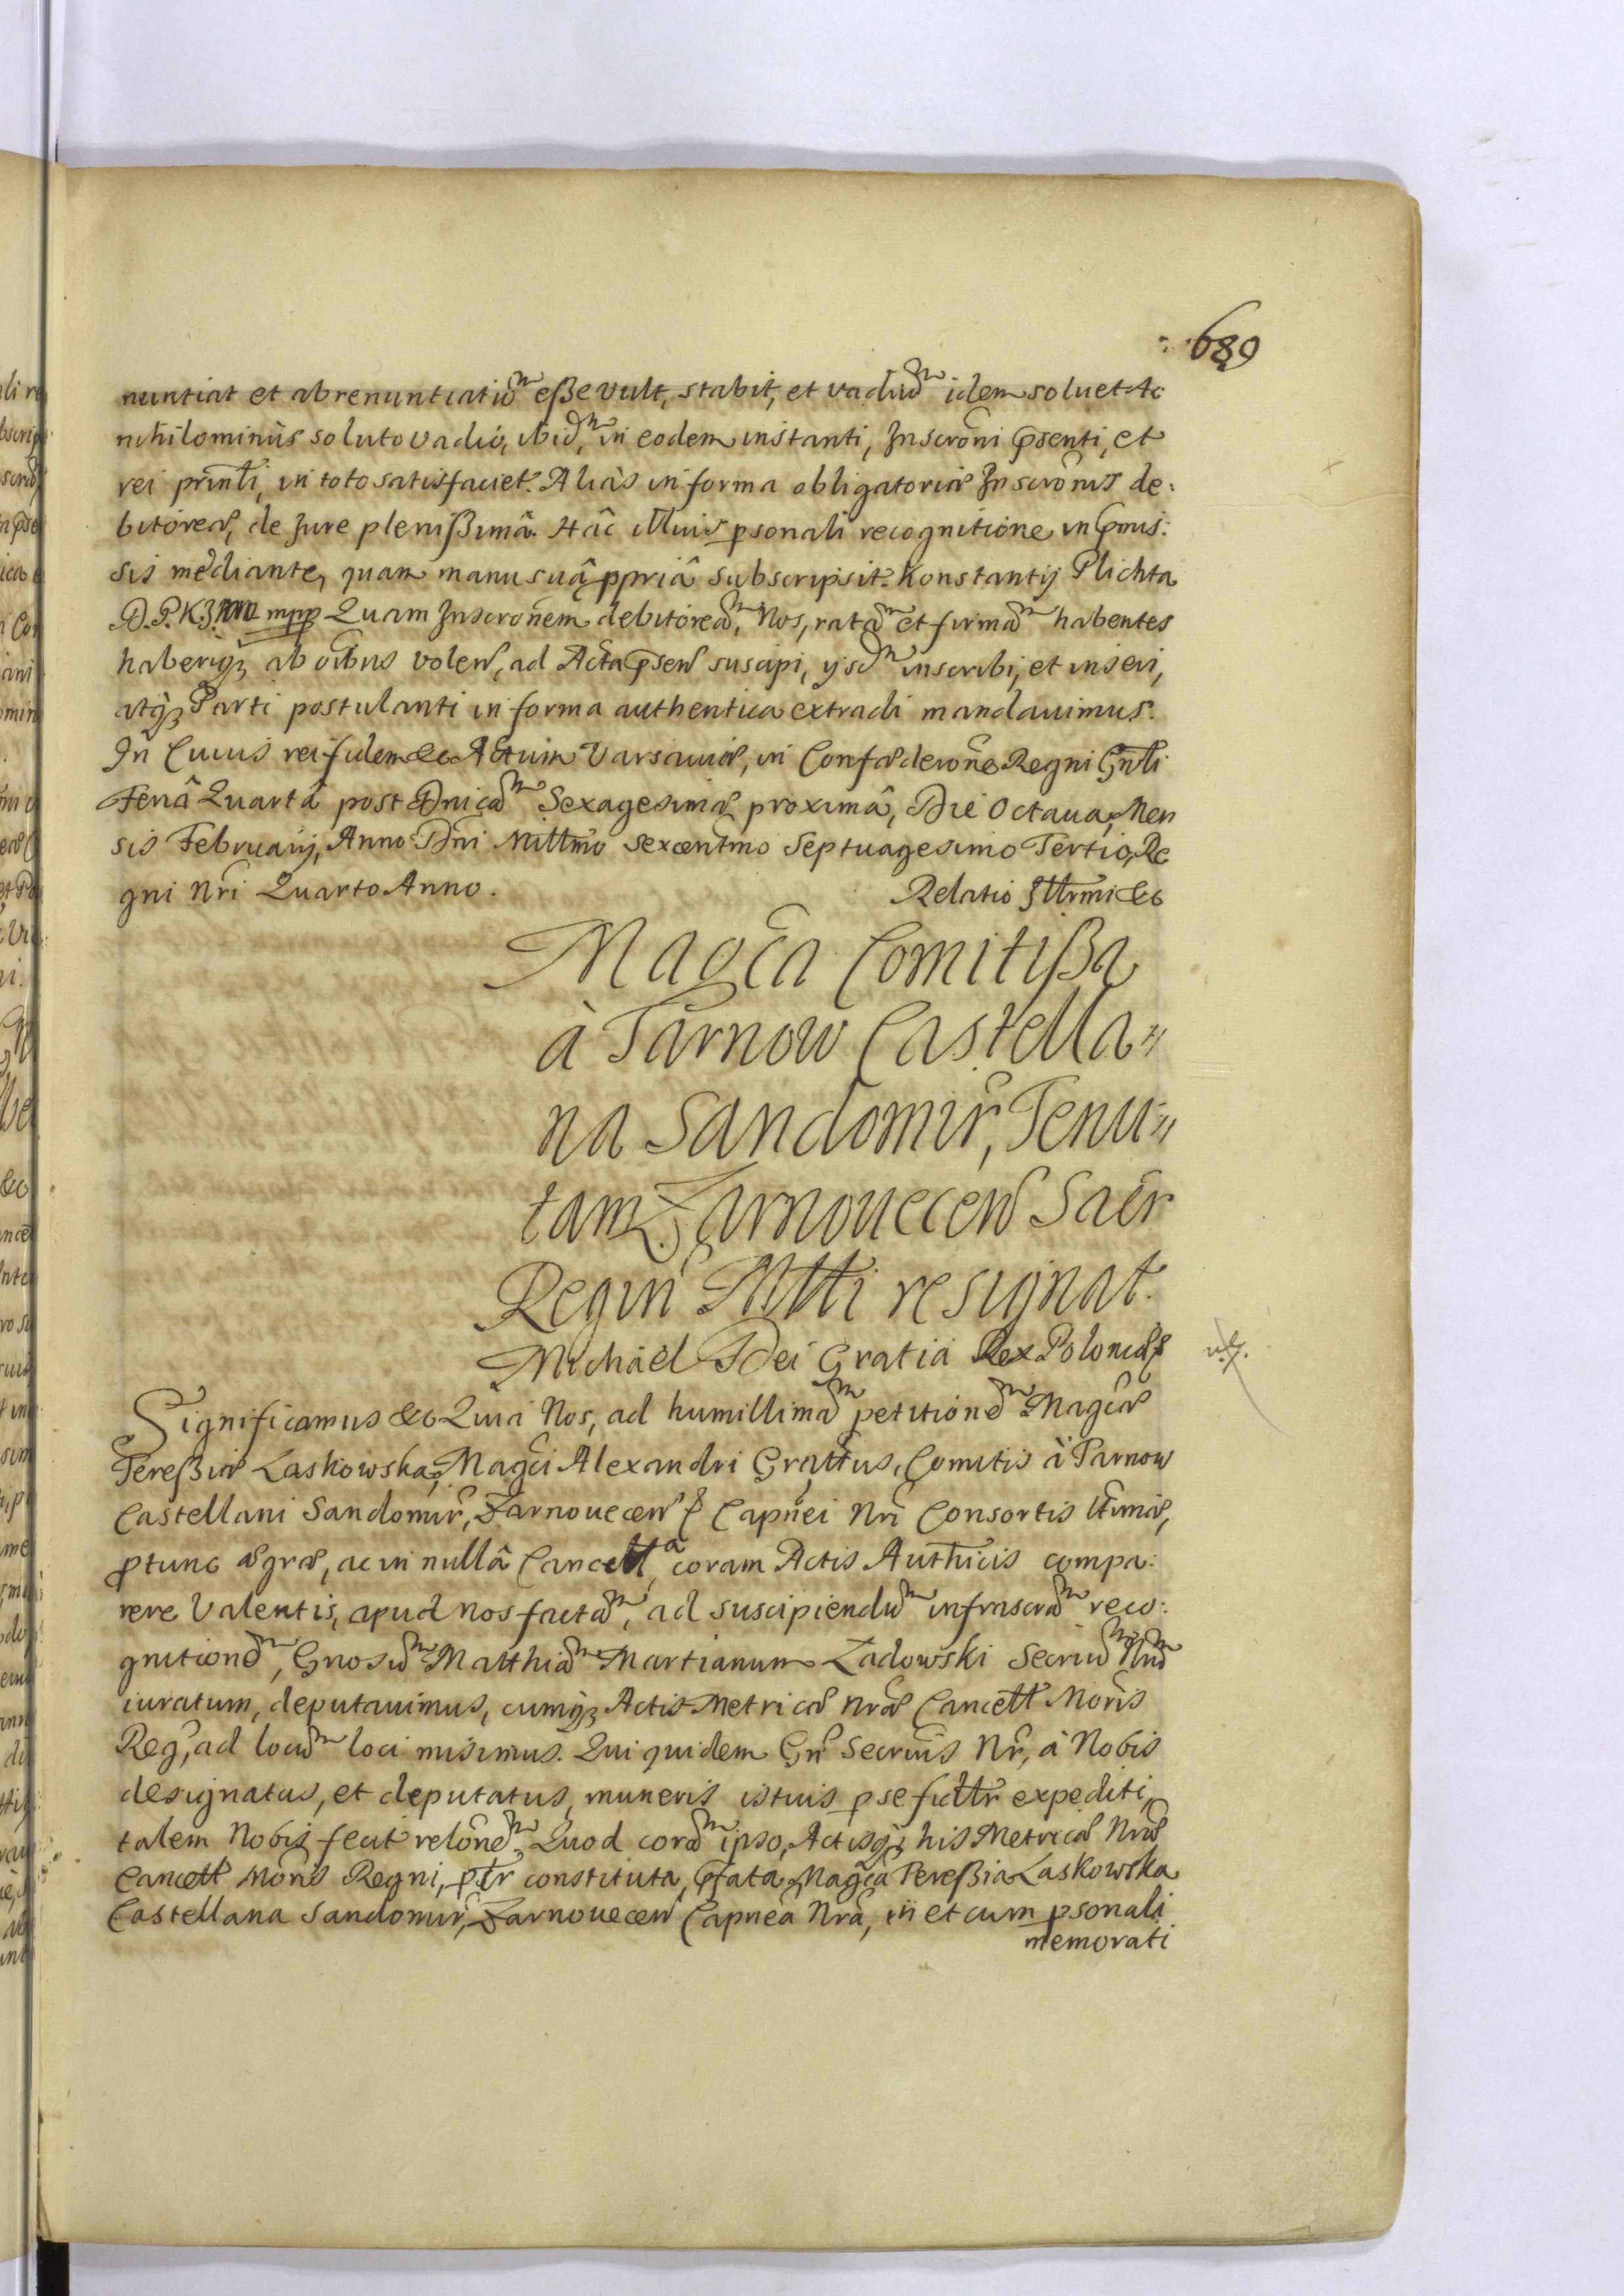 689
nuntiat et abrenuntiatũ eße vult, stabit, et vadiũ idem soluet Ac
nihilominùs soluto vadio, ibid̃, in eodem instanti, Inscrõni p̃senti, et
rei prin̄tti, in toto satisfaciet. Aliàs in forma obligatoriæ Inscrõnis de:
bitoreæ, de Jure plenißimâ. Hâc illius psonali recognitione in p̃mis:
sis mediante, quam manu suâ ppriâ subscripsit. Konstantij Plichta
mpp Quam Inscrõnem debitoreã, Nos, ratã et firmã habentes
haberiq3 ab oĩbus volen̄, ad Acta p̃sen̄ suscipi, ijsd̃ inscribi, et inseri,
atq3 Parti postulanti in forma authentica extradi mandauimus.
In Cuius rei fidem &c Actum Varsauiæ, in Confœderõne Regni Gñtti
Feriâ Quartâ post Dnicã Sexagesimæ proximâ, Die Octaua, Men
sis Februarij, Anno Dñi Mittmo Sexcentmo Septuagesimo Tertio, Re
gni Nr̃i Quarto Anno. Relatio Ittrmi &c
Magc̃a Comitißa
à Tarnow Castella〃
na Sandomir̃, Tenu〃
tam Żarnouecen̄ Sacr̃
Regin̄ Mtti resignat.
Michaël Dei Gratia Rex Poloniæ
Significamus &c Quia Nos, ad humillimã petitionẽ Magc̃æ
Tereßiæ Laskowska, Magc̃i Alexandri Grattus, Comitis à Tarnow
Castellani Sandomir̃, Żarnouecen̄ Capn̄ei Nr̃i Consortis ttimæ,
ptunc ægræ, ac in nullâ Cancettª coram Actis Authc̃is compa:
rere Valentis, apud nos factã, ad suscipiendũ infrascrã reco:
gnitionẽ, Gnosũ Matthiã Martianum Ładowski Secriũ Nrũ
iuratum, deputauimus, cumq3 Actis Metricæ nræ Cancett Moris
Reg̃, ad locũ loci misimus. Qui quidem Gñ Secrius Nr̃, à Nobis
designatus, et deputatus, muneris istius p se ficttr expediti,
talem Nobis fecit relõnẽ. Quod corã ipso, Actisq3 his Metricæ Nræ
Cancett Moris Regni, pttr constituta, p̃fata Magc̃a Tereßia Laskowska
Castellana Sandomir̃, Żarnouecen̄ Capnea Nrã, in et cum psonali
memorati